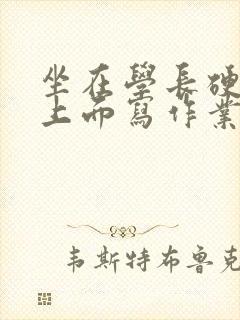 坐在學長硬
上而寫作業
韦斯特布鲁克